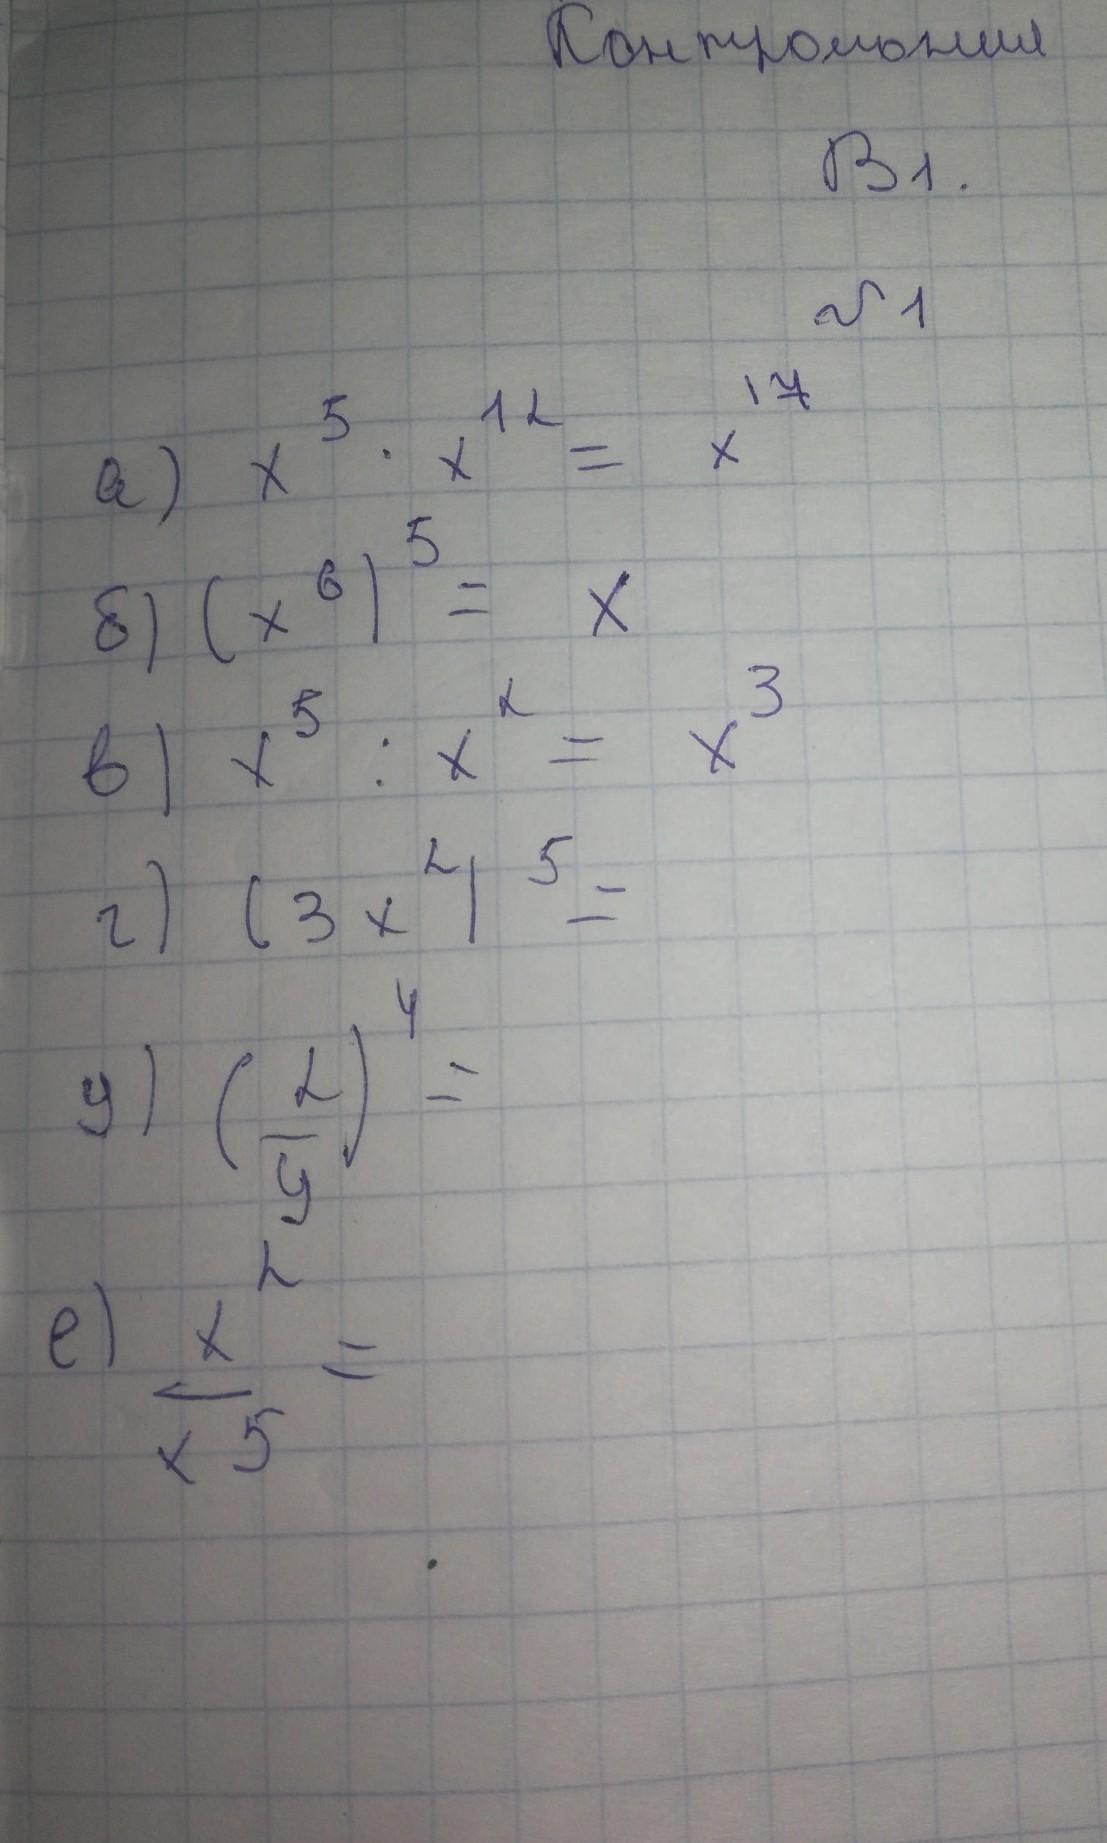 Контрольная
В1.
№1
а) x⁵ · x¹² = x¹⁷
б) (x⁶)⁵ = x
в) x⁵ : x² = x³
г) (3x²)⁵ =
д) (2/y)⁴ =
е) x²/x5 =